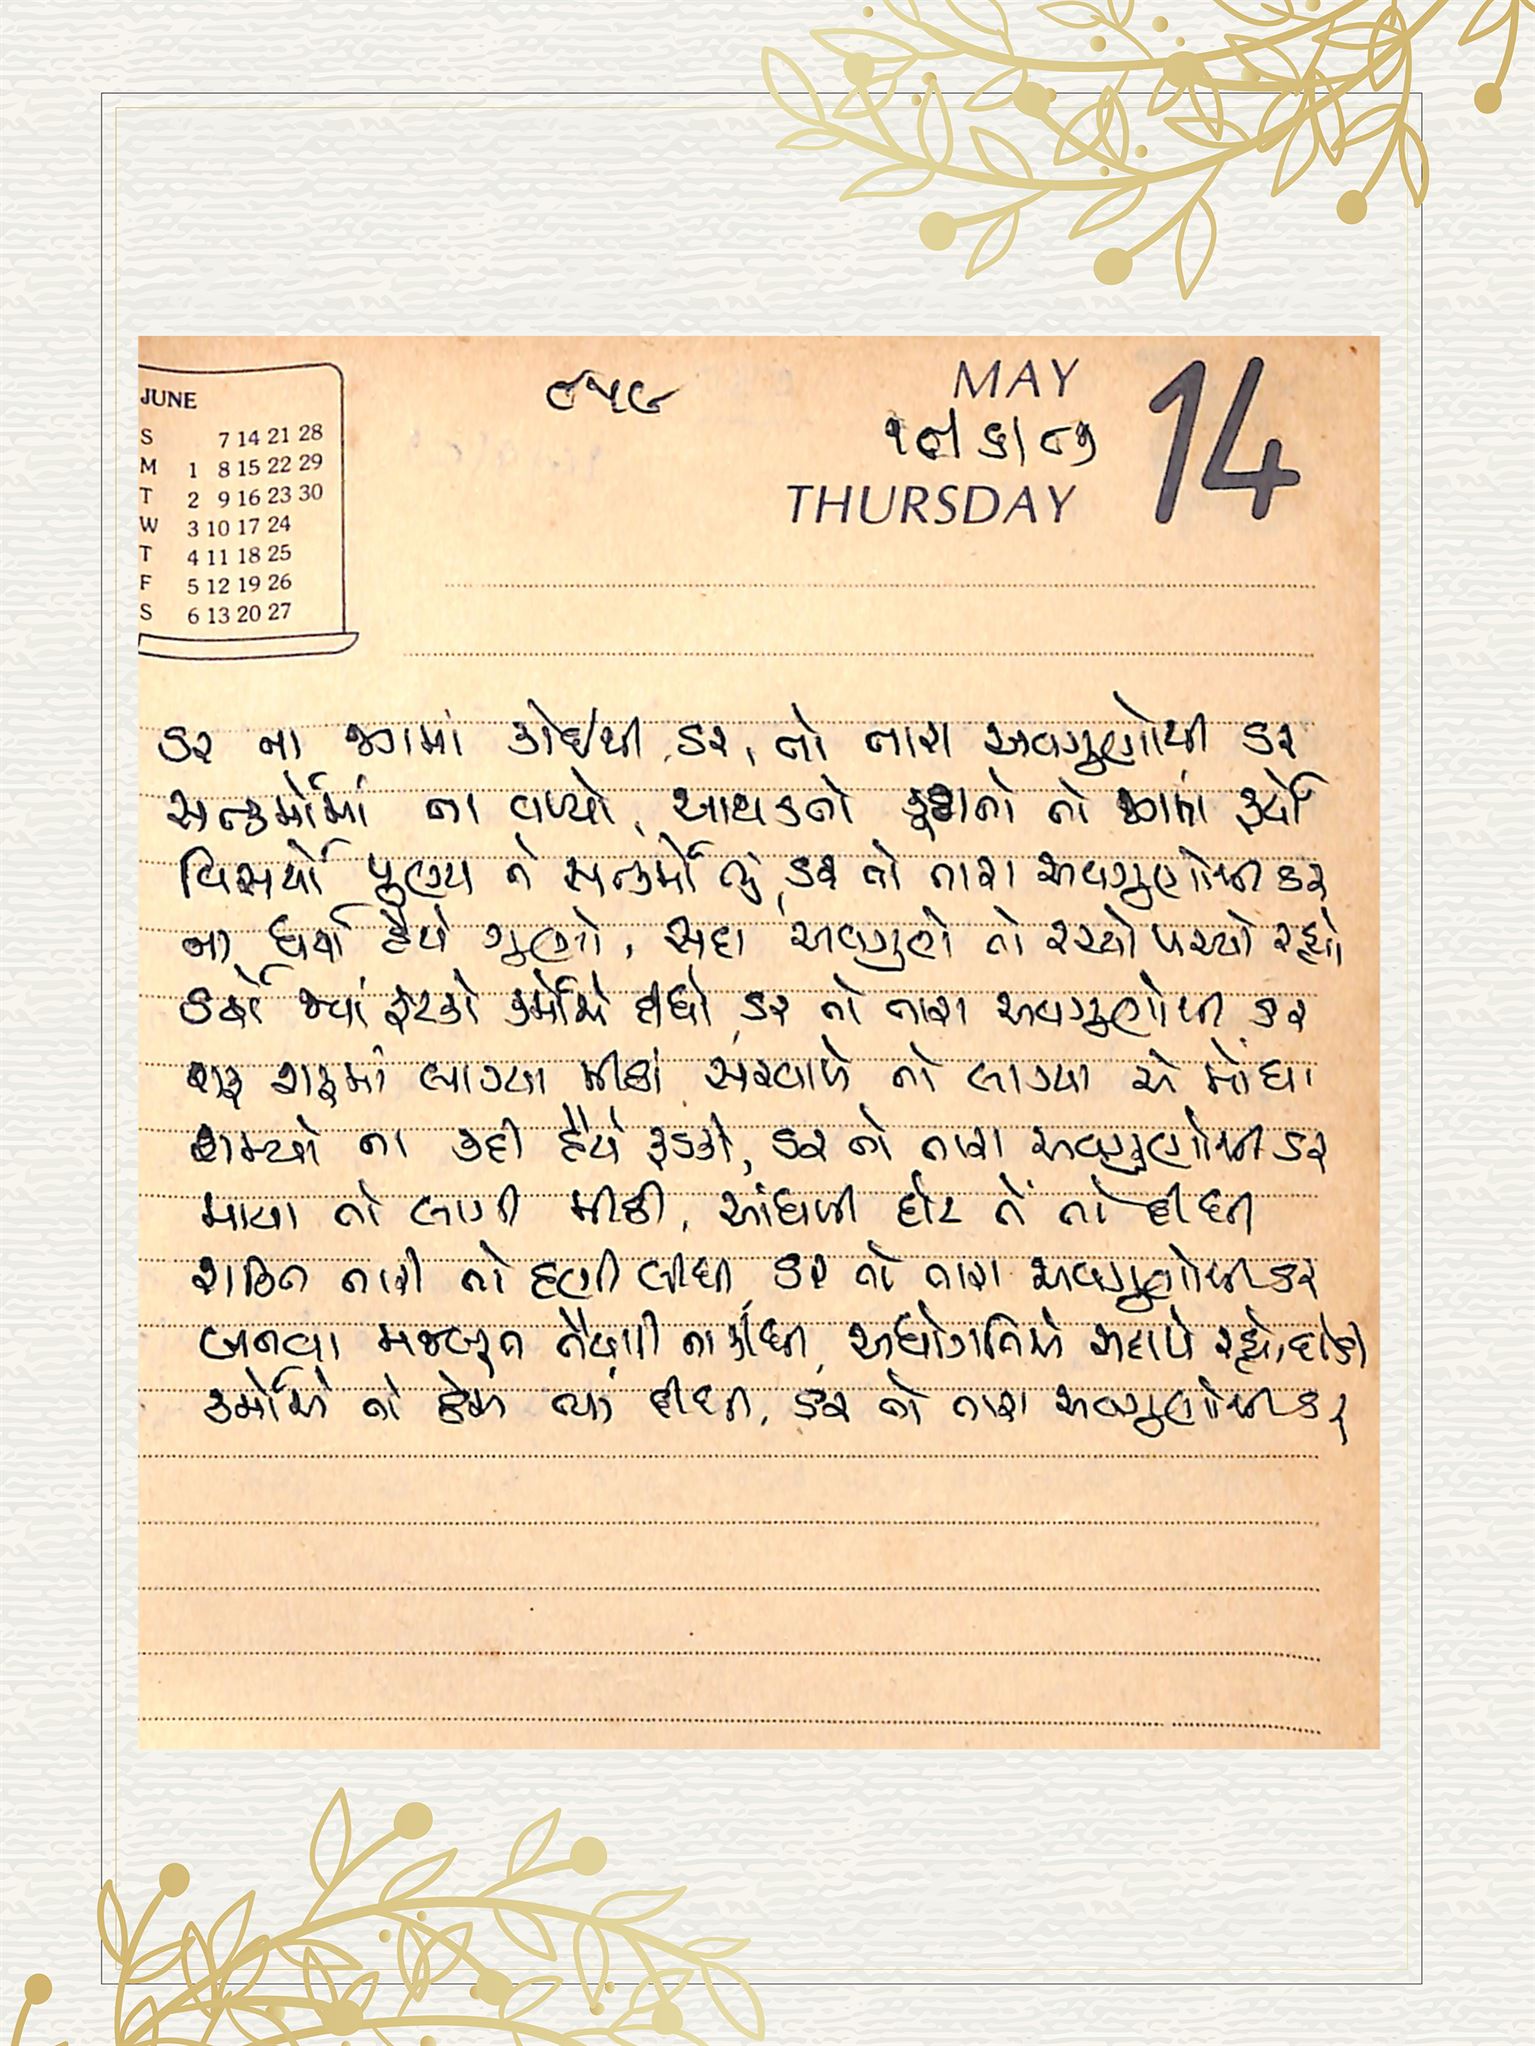 JUNE
S 7 14 21 28
M 1 8 15 22 29
T 2 9 16 23 30
W 3 10 17 24
T 4 11 18 25
F 5 12 19 26
S 6 13 20 27
MAY 14
THURSDAY
ડર ના જગમાં કોઈથી ડર, તો તારા અવગુણોથી ડર
સત્કર્મોમાં ના વળ્યો, આથડતો કૂટાતો તો જગમાં ફર્યો
વિસર્યો પુણ્ય ને સત્કર્મો તું, ડર તો તારા અવગુણોથી ડર
ના ધર્યા હૈયે ગુણો, સદા અવગુણે તો રચ્યો પચ્યો રહ્યો
જ્યાં ફટકો કર્મોએ દીધો, ડર તો તારા અવગુણોથી ડર
શરૂ શરૂમાં લાગ્યા મીઠાં સરવાળે તો લાગ્યા એ મોંઘા
શમ્યો ના કદી હૈયે ફડકો, ડર તો તારા અવગુણોથી ડર
માયા તો લાગી મીઠી, આંધળી દોટ તેં તો દીધી
શક્તિ તારી તો હણી લીધી, ડર તો તારા અવગુણોથી ડર
બનવા મજબૂત તૈયારી ના કીધી, અધોગતિએ સદાયે રહ્યો,
કર્મોએ તો ત્યાં દીધી, ડર તો તારા અવગુણોથી ડર